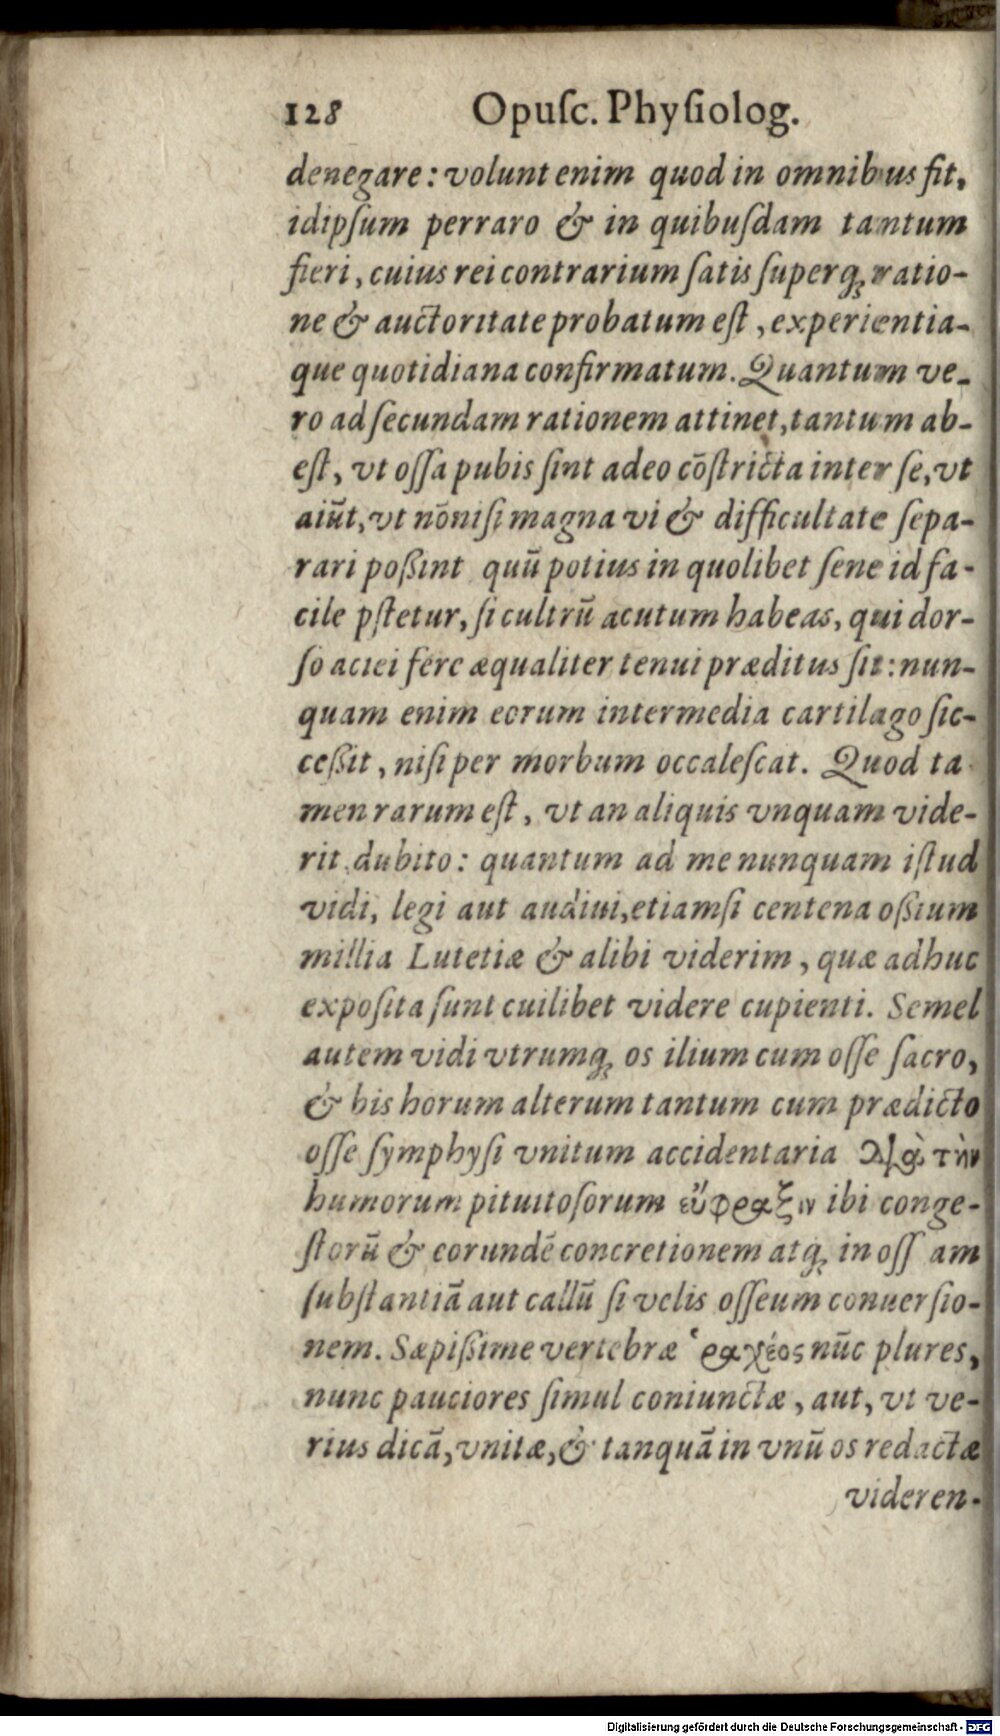 128 Opuſc. Phyſiolog.
denegare: volunt enim quod in omnibus fit,
idipſum perraro & in quibuſdam tantum
fieri, cuius rei contrarium ſatis ſuperq; ratio-
ne & auctoritate probatum eſt, experientia-
que quotidiana confirmatum. Quantum ve-
ro ad ſecundam rationem attinet, tantum ab-
eſt, vt oſſa pubis ſint adeo cõſtricta inter ſe, vt
aiũt, vt nõ niſi magna vi & difficultate ſepa-
rari poßint quũ potius in quolibet ſene id fa-
cile pſtetur, ſi cultrũ acutum habeas, qui dor-
ſo aciei fere æqualiter tenui præditus ſit: nun-
quam enim eorum intermedia cartilago ſic-
ceßit, niſi per morbum occaleſcat. Quod ta
men rarum eſt, vt an aliquis vnquam vide-
rit dubito: quantum ad me nunquam iſtud
vidi, legi aut audiui, etiamſi centena oßium
millia Lutetiæ & alibi viderim, quæ adhuc
expoſita ſunt cuilibet videre cupienti. Semel
autem vidi vtrumq; os ilium cum oſſe ſacro,
& bis horum alterum tantum cum prædicto
oſſe ſymphyſi vnitum accidentaria διὰ τὴν
humorum pituitoſorum εὔφραξιν ibi conge-
ſtorũ & eorundẽ concretionem atq; in oſſ am
ſubſtantiã aut callũ ſi velis oſſeum conuerſio-
nem. Sæpißime vertebræ ῥαχέος nũc plures,
nunc pauciores ſimul coniunctæ, aut, vt ve-
rius dicã, vnitæ, & tanquã in vnũ os redactæ
videren-
Digitalisierung gefördert durch die Deutsche Forschungsgemeinschaft - DFG